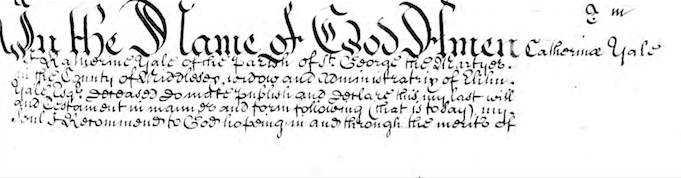 In the Name of God Amen
T m
Catherinæ Yale
I Katherine Yale of the Parish of St. George the Martyr
in the County of Middlesex widow and Administratrix of Elihu
Yale Esqr. deceased do make publish and declare this my last will
and Testament in manner and form following (that is to say) my
Soul I Recommend to God hopeing in and through the merits of